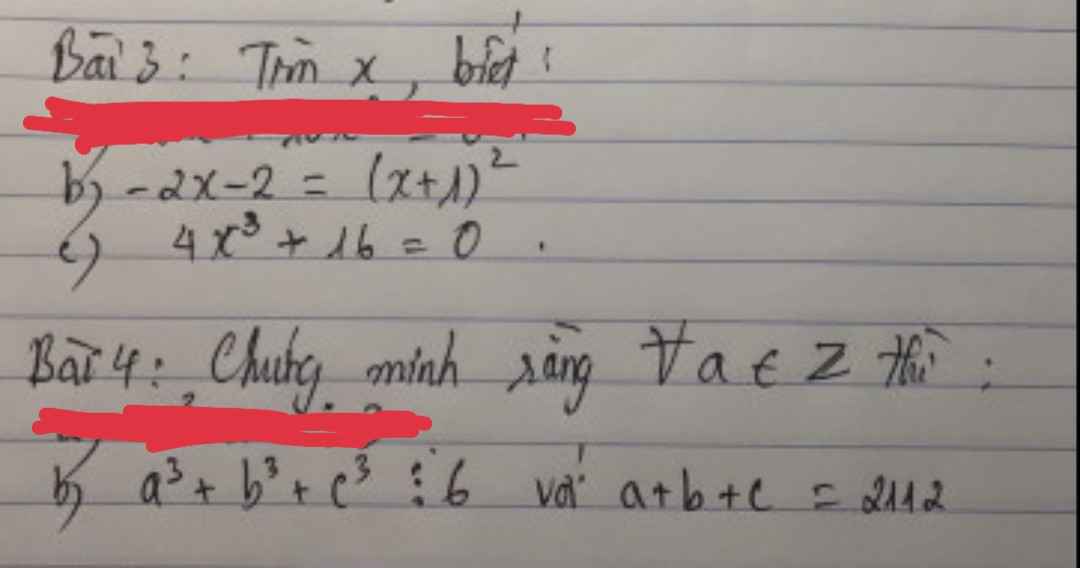 Bài 3: Tìm x, biết:
b) -2x-2 = (x+1)²
c) 4x³ + 16 = 0.
Bài 4: Chứng minh rằng ∀a ∈ Z thì:
b) a³ + b³ + c³ ⋮ 6 với a+b+c = 2112